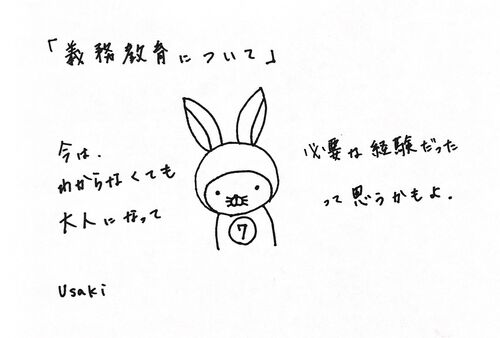 「義務教育について」
今は、
わからなくても
大人になって
必要な経験だった
って思うかもよ.
7
Usaki